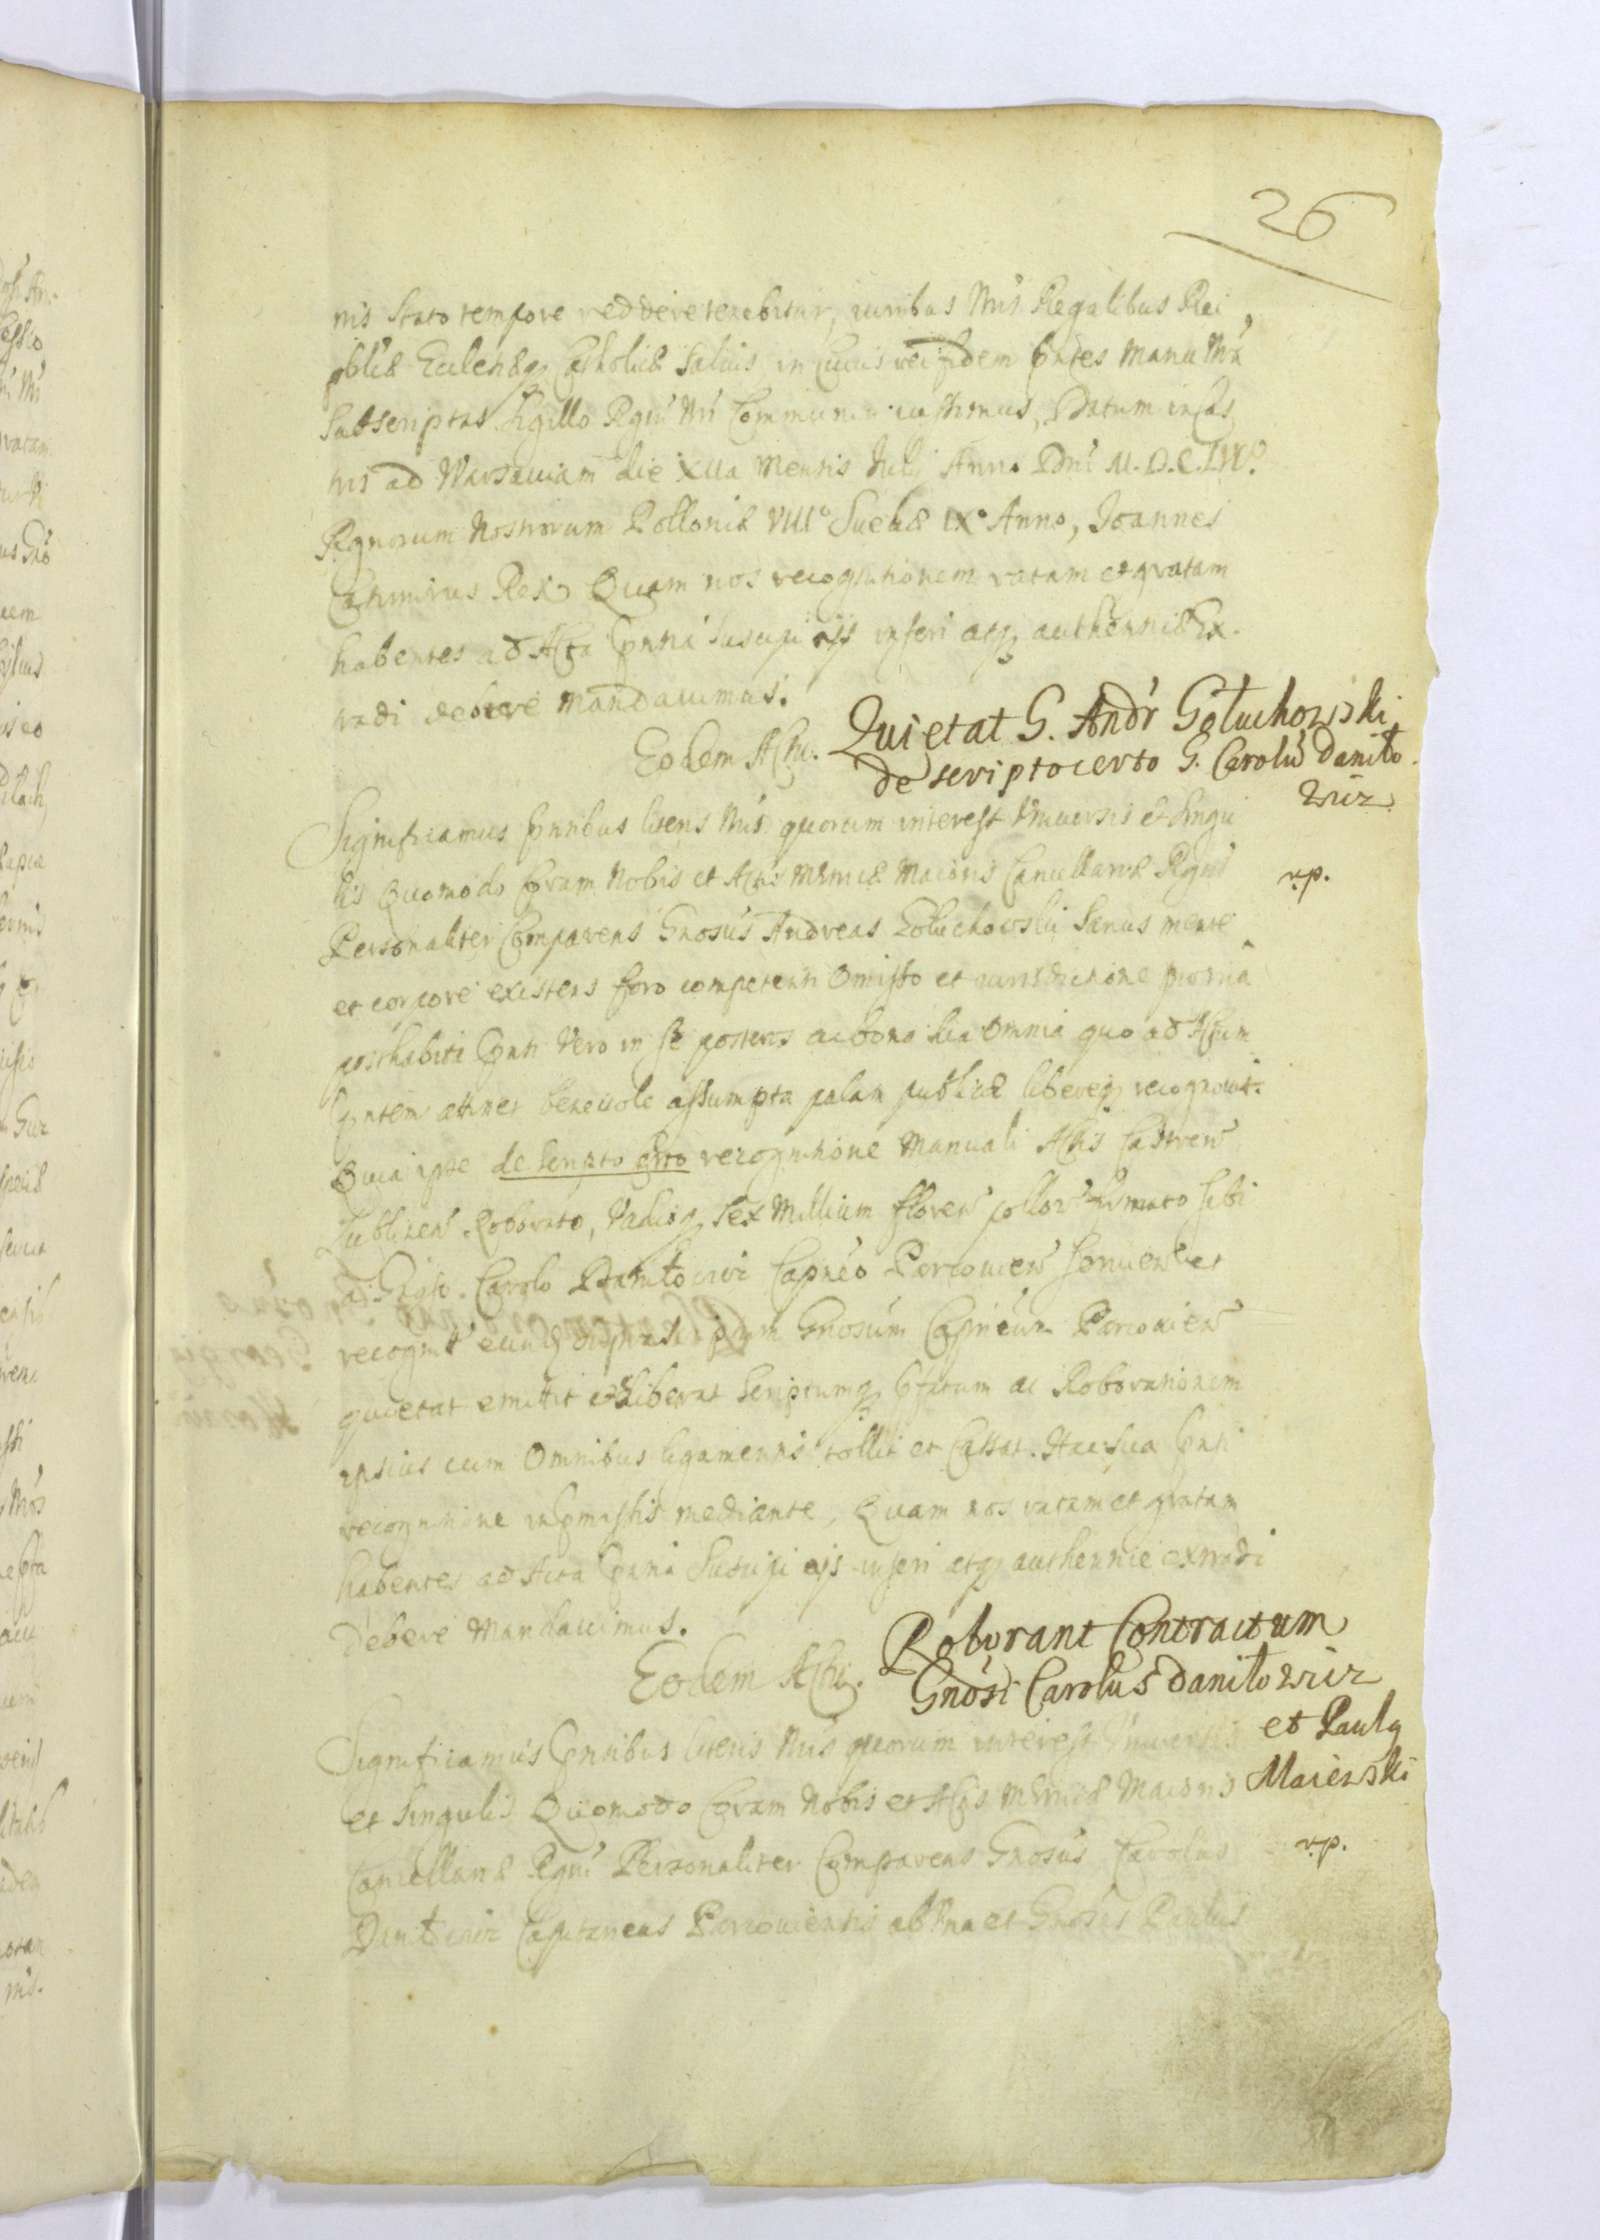 26
nis stato tempore reddere tenebitur, iuribus Nris Regalibus Rei
pblicæ Ecclesiæq Catholicæ salvis, in cuius rei fidem pntes manu Nra
subscriptas Sigillo Regni Nri communiri iussimus, Datum in Cas
tris ad Warsaviam die XIIa Mensis Julij Anno Dni M.D.C.LVIº
Regnorum Nostrorum Polloniæ VIIIº Sueciæ IXº Anno, Joannes
Casimirus Rex. Quam nos recognitionem ratam et gratam
habentes ad Acta pntia suscipi eisq inseri atq authenticè Ex
tradi debere mandavimus.
Eodem Actu.
Quietat G. Andr Gołuchowski
de scripto certo G. Carolũ Daniło
wicz
Significamus pntibus literis Nris quorum interest Universis et singu
lis Quomodo Coram Nobis et Actis Mtricæ Maioris Cancellariæ Regni
r.p.
Personaliter Comparens Gnosus Andreas Goluchowski Sanus mente
et corpore existens foro competenti Omisso et iurisdictione propria
posthabita pnti vero in se posteros ac bona sua Omnia quo ad Actum
pntem attinet benevole assumpta palam publice libereq recognovit.
Quia ipse de scripto certo recognitione Manuali Actis Castren
Lublinen Roborato, Vadioq sex Millium floren pollon firmato sibi
a Gnoso Carolo Daniłowicz Capneo Parczovien servien et
recognit eundq ipsum Gnosum Capneum Parczovien
quietat emittit et liberat Scriptumq pfatum ac Roborationem
ipsius cum Omnibus ligamentis tollit et Cassat. Hac sua pnti
recognitione in pmissis mediante, Quam nos ratam et gratam
habentes ad Acta pntia suscipi eis inseri atq authentice extradi
debere Mandavimus.
Eodem Actu.
Roborant Contractum
Gnosi Carolus Daniłowicz
et Paulq
Maiewski
Significamus pntibus literis Nris quorum interest Universis
et singulis Quomodo Coram Nobis et Actis Mtricæ Maioris
Cancellariæ Regni Personaliter Comparens Gnosus Carolus
r.p.
Daniłowicz Capitaneus Parczoviensis ab Una et Gnosus Paulus